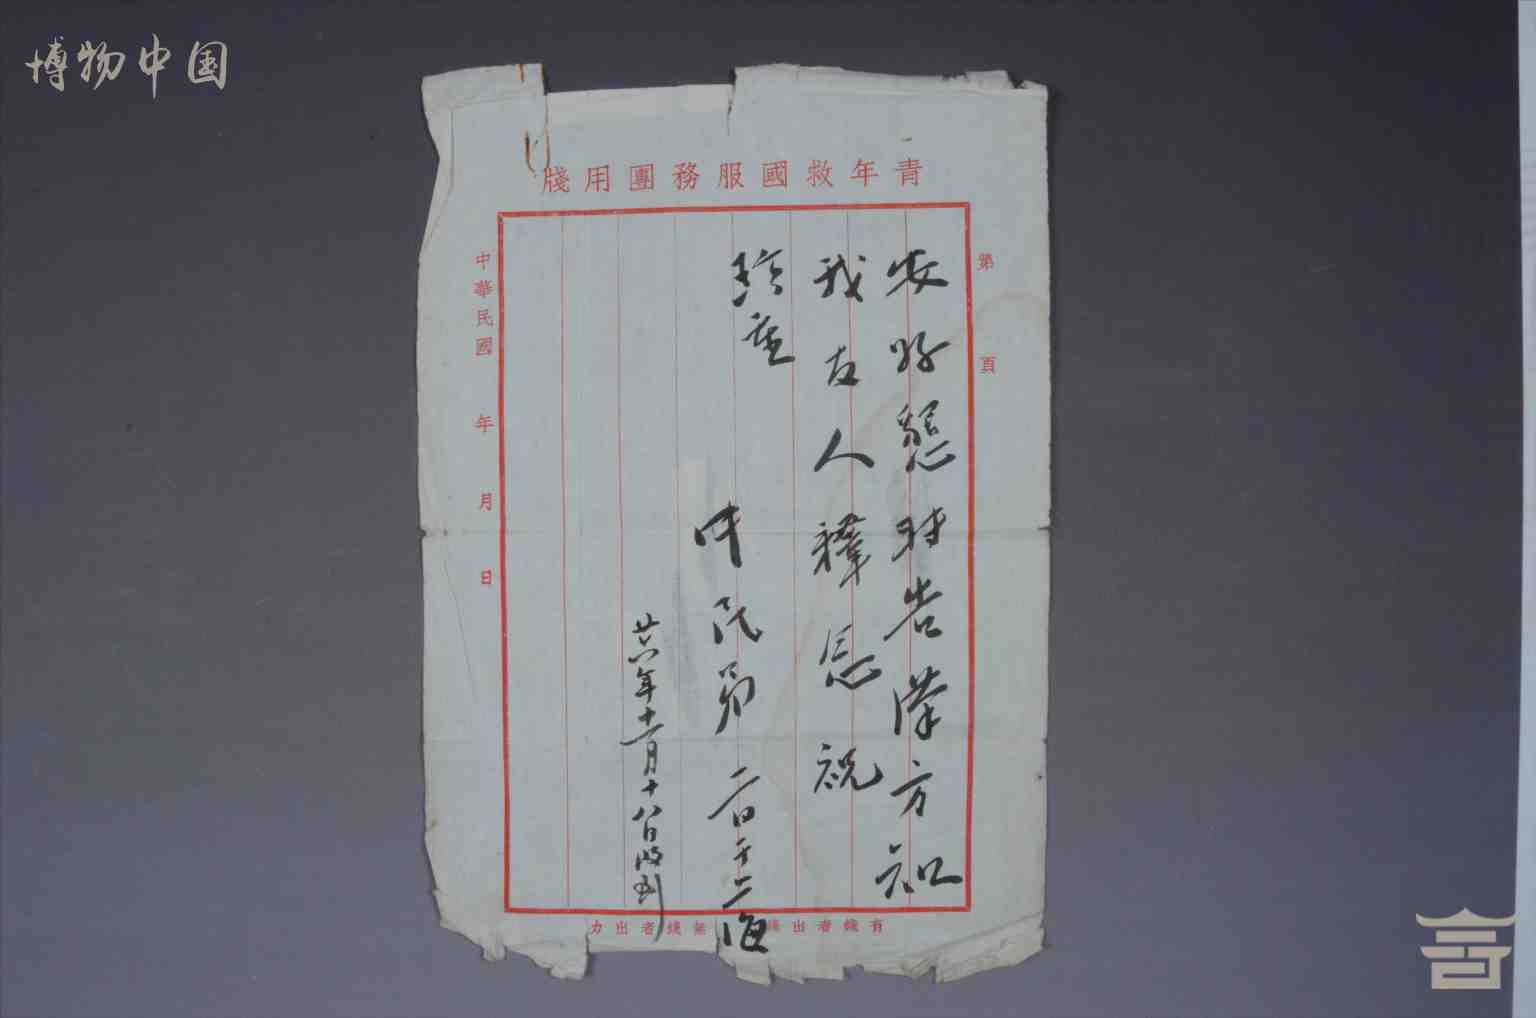 博物中国
青年救國服務團用牋
第 頁
安好懇轉告漢方知
我友人釋念祝
珍重
中民弟
廿六年十一月十八日收到
中華民國 年 月 日
有錢者出錢
無錢者出力